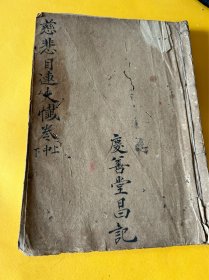 慈悲目連大懺卷上中下
慶善堂昌記